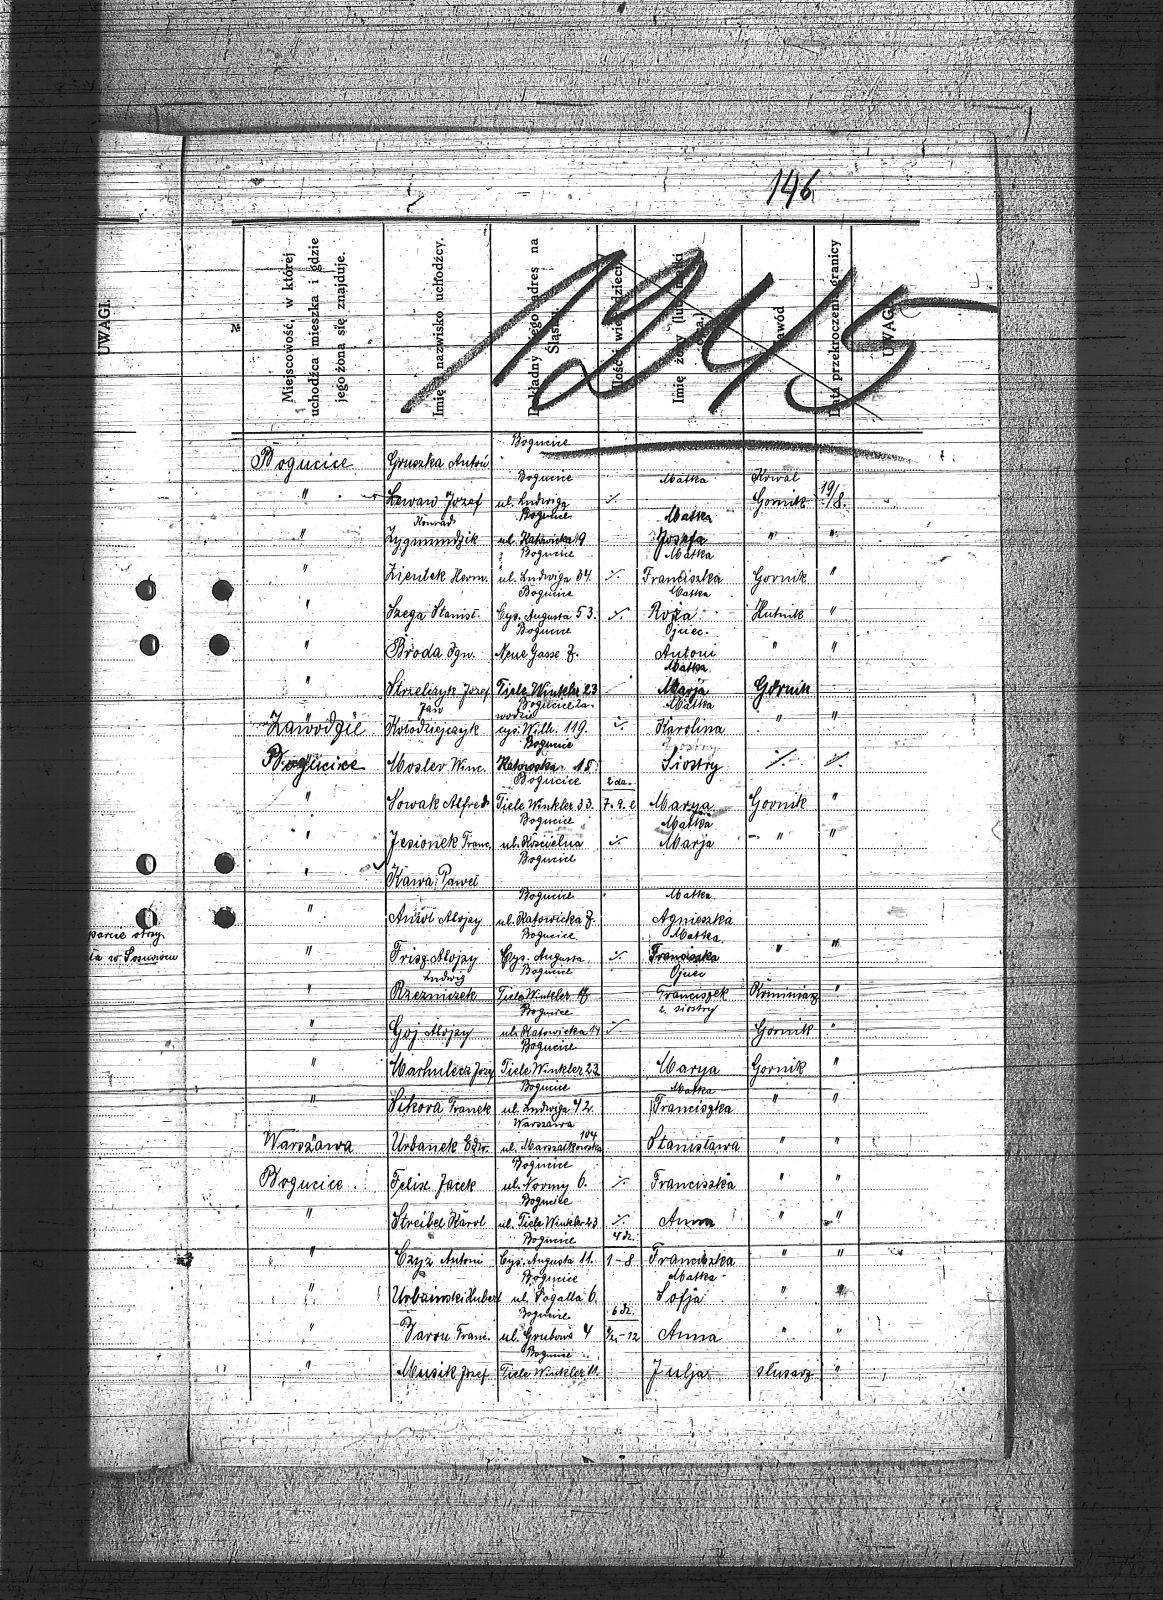 146
1245
UWAGI.
№
Miejscowość, w której uchodźca mieszka i gdzie jego żona się znajduje.
Imię i nazwisko uchodźcy.
Dokładny jego adres na Śląsku
Ilość i wiek dzieci
Imię żony (lub matki ojca.)
Zawód
Data przekroczenia granicy
UWAGI.
Bogucice
Bogucice Gruszka Antoni
Bogucice Matka Kowal
" ul. Ludwiga Gornik 19/8.
Konrad Bogucice Matka
" Zygmundzik ul. Katowicka 9 Josefa " "
Bogucice Matka
" Zientek Herm. ul. Ludwiga 34. Franciszka Gornik "
Bogucice Matka
" Szega Stanisł. Cys. Augusta 53. Roża Hutnik "
Bogucice Ojciec.
" Broda Ign. Neue Gasse 7. Antoni " "
Matka
" Strzelczyk Jozef Tiele Winkler 23 Marja Gornik
Jan Bogucice Zawodzie Matka
Zawodzie Kołodziejczyk cys. Wilh. 119. Karolina " "
Bogucice
Bogucice Katowska 18. Siostry
Bogucice 2 dz.
" Sowak Alfred Tiele Winkler 33. Marya Gornik "
Bogucice Matka
" Jesionek Franc. ul. Kościelna Marja " "
Bogucice
" Kawa Paweł
Bogucice Matka
" Alojzy ul. Katowicka 7. Agnieszka
Bogucice Matka
" Frisz Alojzy Cys. Augusta Franciszka " "
parcie otrzy-
Ludwig Bogucice Ojciec
" Rzezniczek Tiele Winkler 17 Franciszek Kominiarz "
Bogucice 2. siostry
" Goj Alojzy ul. Katowicka 14 Gornik "
Bogucice
" Tiele Winkler 23 Marya Gornik "
Bogucice Matka
" Sikora Franek ul. Ludwiga 42. Franciszka " "
Warszawa
104
Warszawa Urbanek Edw. ul. Marszałkowska Stanisława " "
Bogucice
Bogucice. Felix Jacek ul. Normy 6. Franciszka " "
Bogucice
" Streibel Karol ul. Tiele Winkler 23 Anna " "
Bogucice 4 dz.
" Czyż Antoni Cys. Augusta 11. 1-8 Franciszka " "
Bogucice Matka
" Hubert ul. Pogalla 6. Sofja " "
Bogucice 6 dz.
" Franc. ul. Grubowa 4 Anna " "
Bogucice
" Musik Jozef Tiele Winkler 11. Julja słusarz "